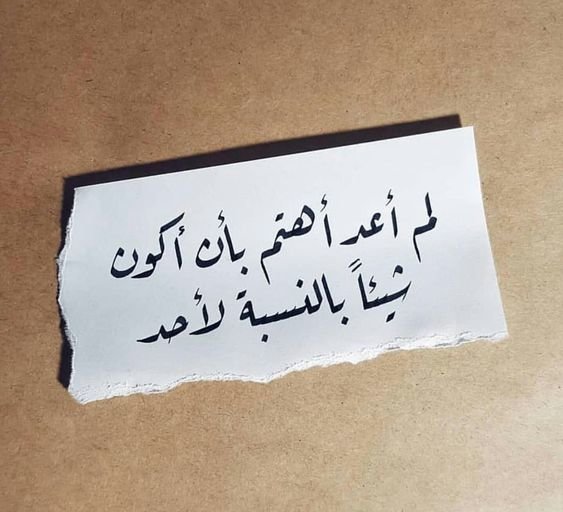 لم أعد أهتم بأن أكون
شيئاً بالنسبة لأحد